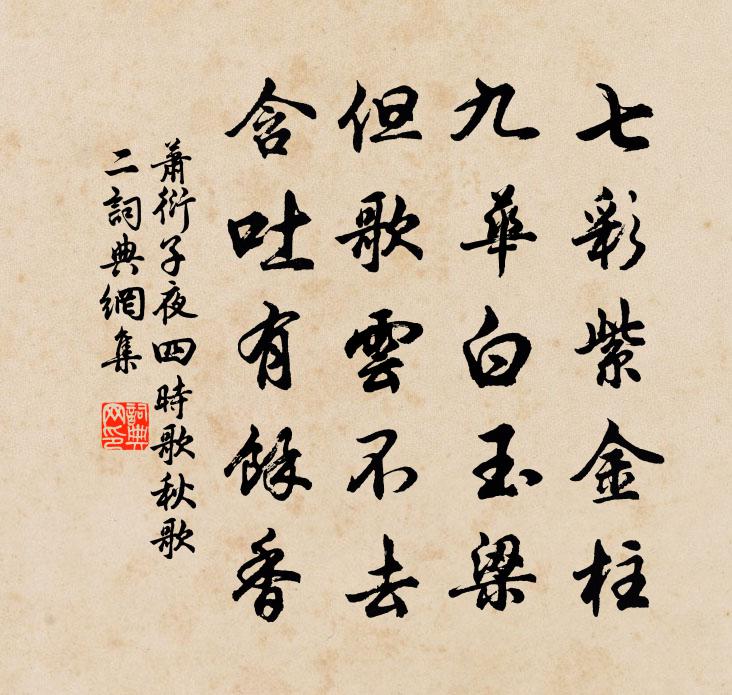 七彩紫金柱
九華白玉梁
但歌雲不去
含吐有餘香
蕭衍子夜四時歌秋歌
二詞典網集
詞典网印